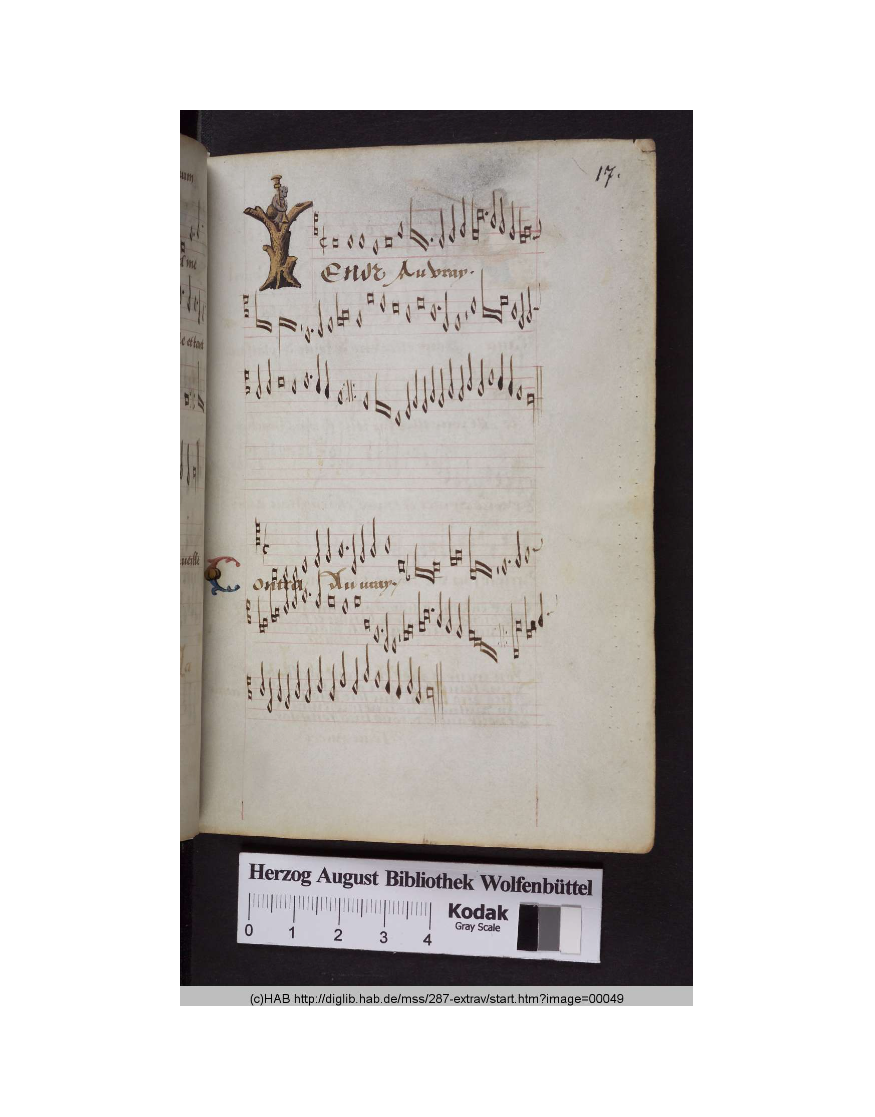 17.
Tenor Au vray.
Contra Au vray
Herzog August Bibliothek Wolfenbüttel
0 1 2 3 4
Kodak
Gray Scale
(c)HAB http://diglib.hab.de/mss/287-extrav/start.htm?image=00049